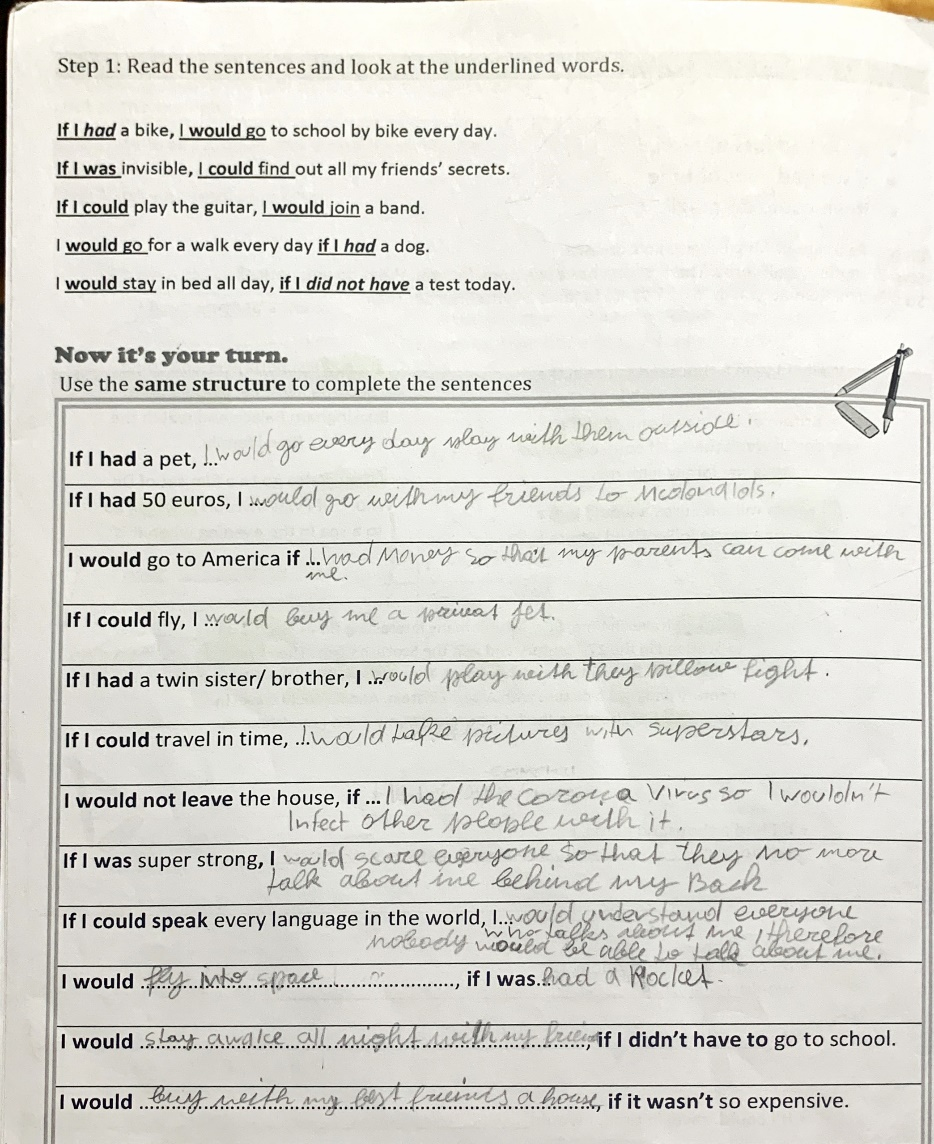 Step 1: Read the sentences and look at the underlined words.
If I had a bike, I would go to school by bike every day.
If I was invisible, I could find out all my friends' secrets.
If I could play the guitar, I would join a band.
I would go for a walk every day if I had a dog.
I would stay in bed all day, if I did not have a test today.
Now it's your turn.
Use the same structure to complete the sentences
If I had a pet, I...would go every day play with them outside.
If I had 50 euros, I ...would go with my friends to Mcdonalds.
I would go to America if ...I had Money so that my parents can come with
me.
If I could fly, I ...would buy me a privat jet.
If I had a twin sister/ brother, I ...would play with they pillow fight.
If I could travel in time, ...I would take pictures with superstars.
I would not leave the house, if ...I had the Corona Virus so I wouldn't
Infect other people with it.
If I was super strong, I would scare everyone so that they no more
talk about me behind my Back
If I could speak every language in the world, I...would understand everyone
who talks about me, therefore
nobody would be able to talk about me.
I would fly into space ..............., if I was...had a Rocket.
I would stay awake all night with my friends, if I didn't have to go to school.
I would ...buy with my best friends a house, if it wasn't so expensive.